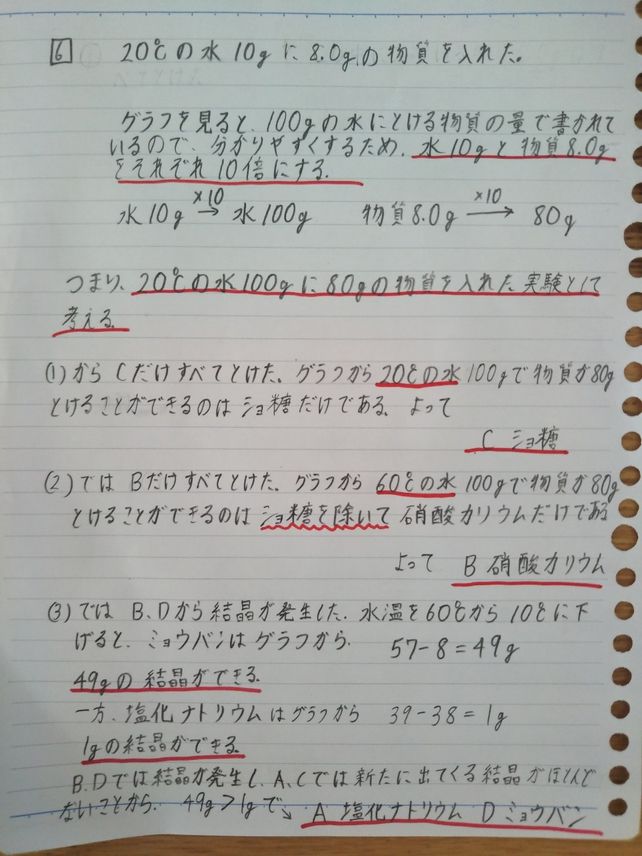 6 20℃の水10gに8.0gの物質を入れた。
グラフを見ると、100gの水にとける物質の量で書かれて
いるので、分かりやすくするため、水10gと物質8.0g
をそれぞれ10倍にする。
水10g ×10→ 水100g 物質8.0g ×10→ 80g
つまり、20℃の水100gに80gの物質を入れた実験として
考える
(1)からCだけすべてとけた。グラフから20℃の水100gで物質が80g
とけることができるのはショ糖だけである。よって
C ショ糖
(2)ではBだけすべてとけた。グラフから60℃の水100gで物質が80g
とけることができるのはショ糖を除いて硝酸カリウムだけである
よって B 硝酸カリウム
(3)ではB、Dから結晶が発生した。水温を60℃から10℃に下
げると、ミョウバンはグラフから 57-8=49g
49gの結晶ができる。
一方、塩化ナトリウムはグラフから 39-38=1g
1gの結晶ができる。
B.Dでは結晶が発生し、A、Cでは新たに出てくる結晶がほとんど
ないことから、49g>1gで、A 塩化ナトリウム D ミョウバン